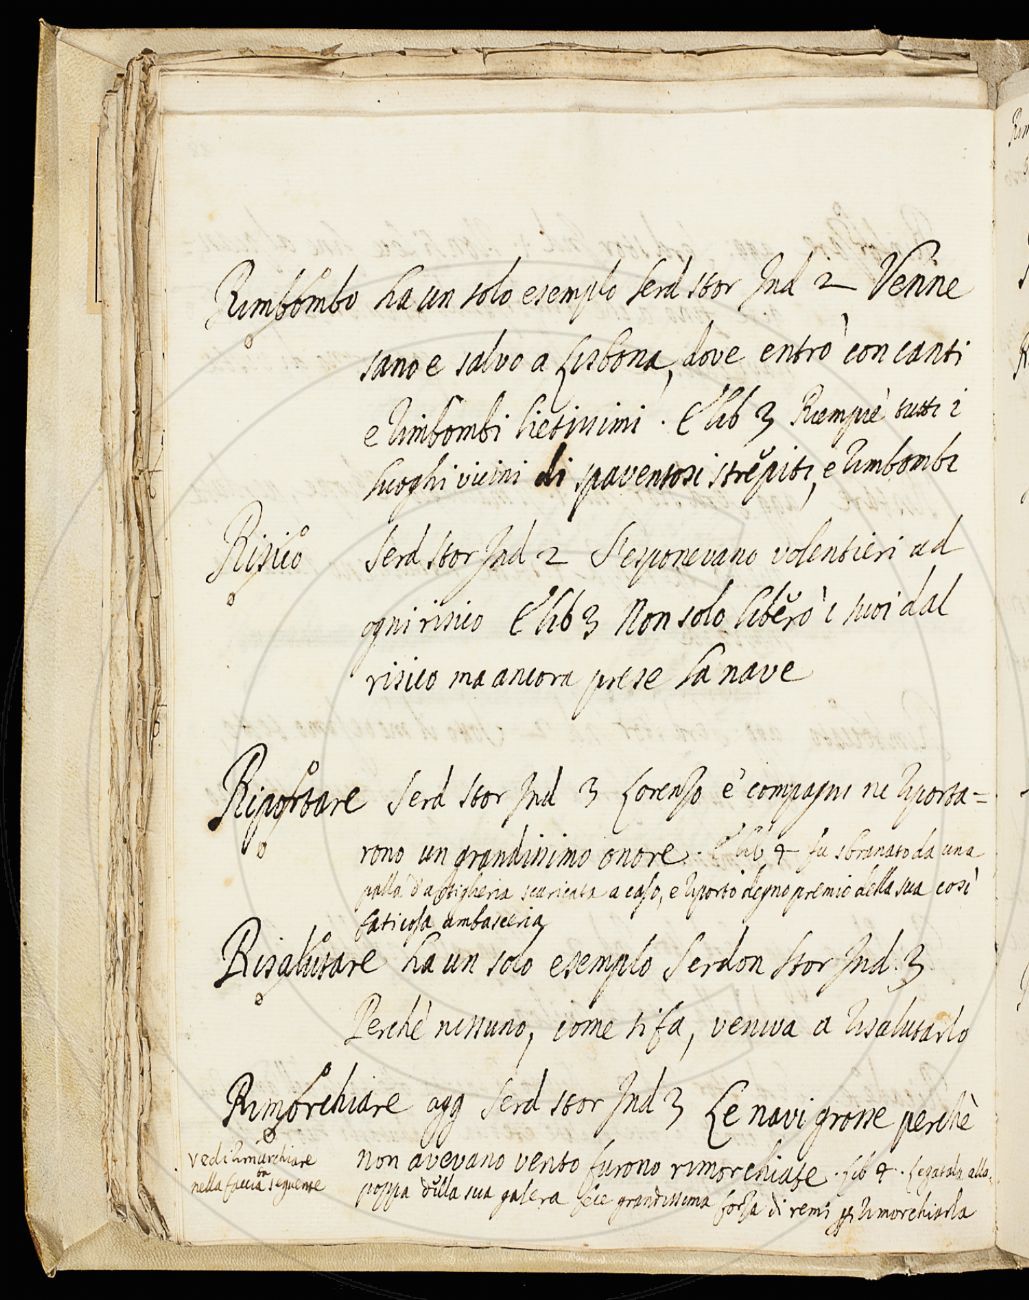 Rimbombo ha un solo esemplo Serd Stor Ind 2 Venne
sano e salvo a Lisbona, dove entrò con canti
e Rimbombi lietissimi. E lib 3 Riempiè tutti i
luoghi vicini di spaventosi strepiti, e Rimbombi
Risico Serd Stor Ind 2 S'esponevano volentieri ad
ogni risico E lib 3 Non solo liberò i suoi dal
risico ma ancora prese la nave
Riportare Serd Stor Ind 3 Lorenzo e compagni ne riporta=
rono un grandissimo onore. E lib 4 fu sbranato da una
palla d'artiglieria scaricata a caso, e riportò degno premio della sua così
faticosa ambasceria
Risalutare ha un solo esemplo Serdon Stor Ind. 3
Perchè nessuno, come si fa, veniva a risalutarlo
Rimorchiare agg Serd Stor Ind 3 Le navi grosse perchè
non avevano vento furono rimorchiate. Lib 4. Legatala alla
poppa della sua galera fece grandissima forza di remi p rimorchiarla
vedi Rimurchiare
nella facciata seguente